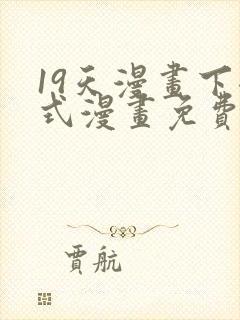 19天漫畫下
式漫畫免費
賈航